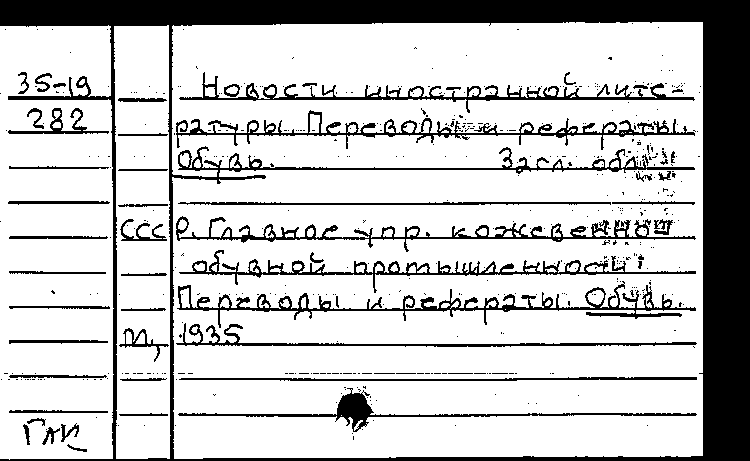 35-19 Новости иностранной лите-
282 ратуры. Переводы и рефераты.
Обувь. Загл. обл.
СССР. Главное упр. кожевенной
обувной промышленности
Переводы и рефераты. Обувь.
М., 1935